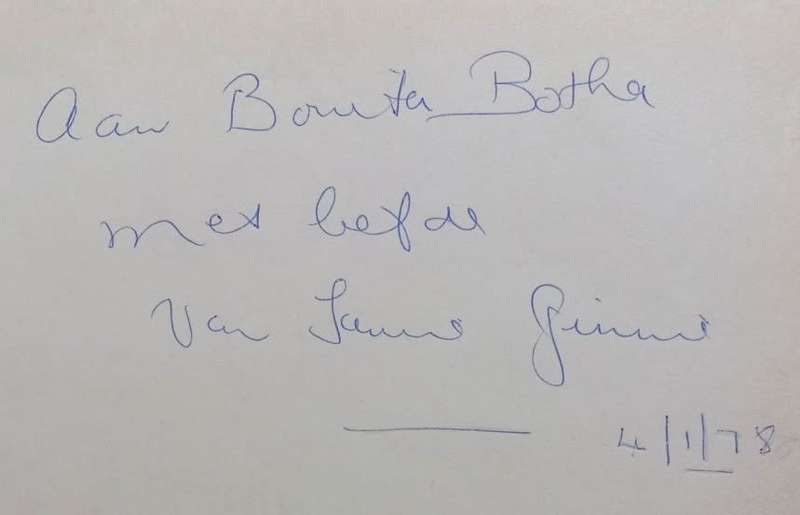 Aan Bonita Botha
met liefde
Van Ginni
4/1/78